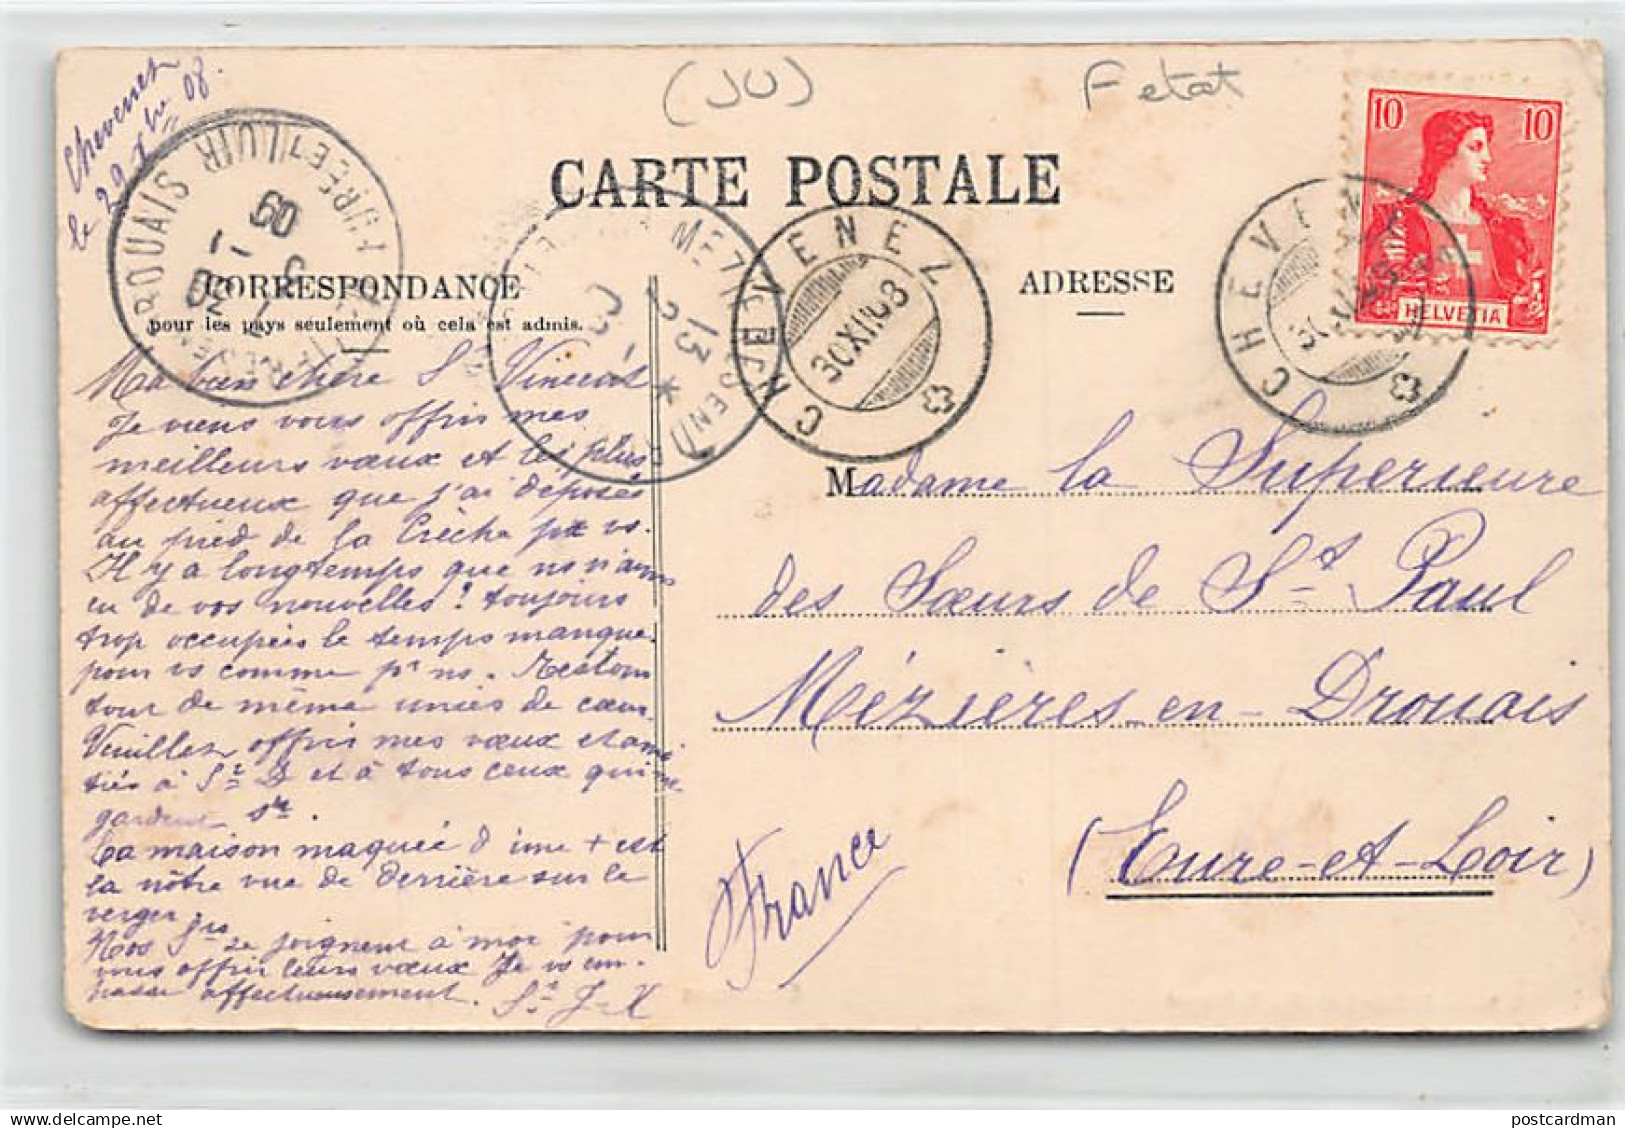 Chevenez
le 29 Xbre 08.
(JU)
F etat
CARTE POSTALE
CORRESPONDANCE
pour les pays seulement où cela est admis.
ADRESSE
10 10
HELVETIA
CHEVENEZ
30 XII 08
CHEVENEZ
EURE-ET-LOIR
13
Ma bien chère Sr Vincent
Je viens vous offrir mes
meilleurs vœux et les plus
affectueux que j'ai déposés
au pied de la Crèche pr vs.
Il y a longtemps que ns n'avons
eu de vos nouvelles! toujours
trop occupées le temps manque
pour vs comme pr ns. Restons
tour de même unies de cœur.
Veuillez offrir mes vœux et ami
tiés à Sr D et à tous ceux qui me
gardent sr.
La maison maquée d'une + est
la nôtre vue de derrière sur le
verger
Nos Srs se joignent à moi pour
vous offrir leurs vœux Je vs em-
brasse affectueusement. Sr J-X
Madame la Superieure
des Sœurs de St Paul
Mézières-en-Drouais
(Eure-et-Loir)
France
postcardman